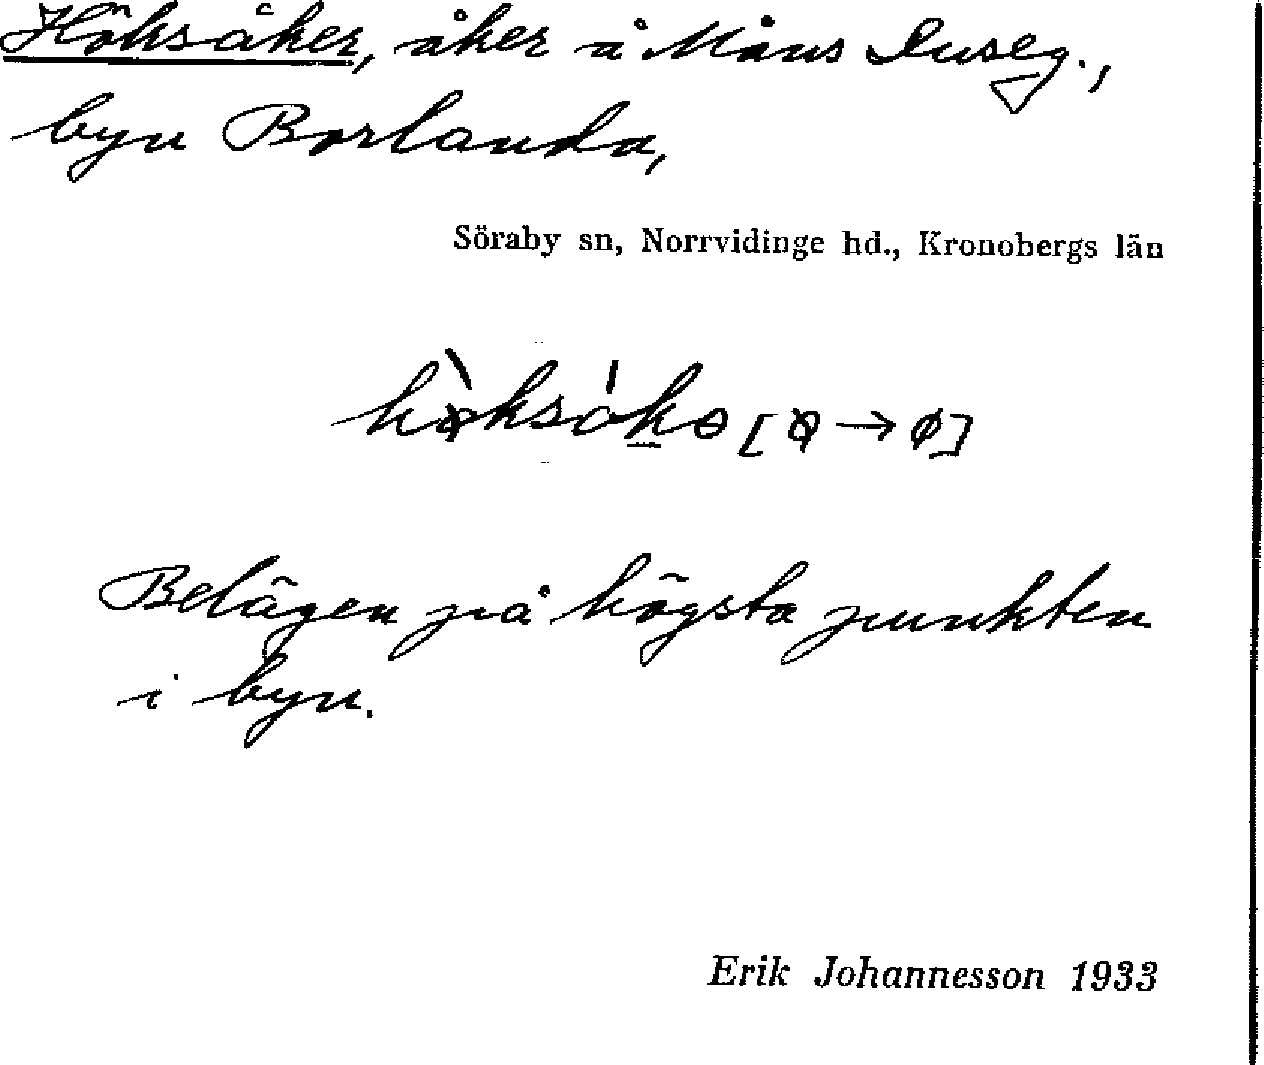 Höksåker, åker å Måns Duseg.,
byn Borlanda,
Söraby sn, Norrvidinge hd., Kronobergs län
[ → ø]
Belägen på högsta punkten
i byn.
Erik Johannesson 1933